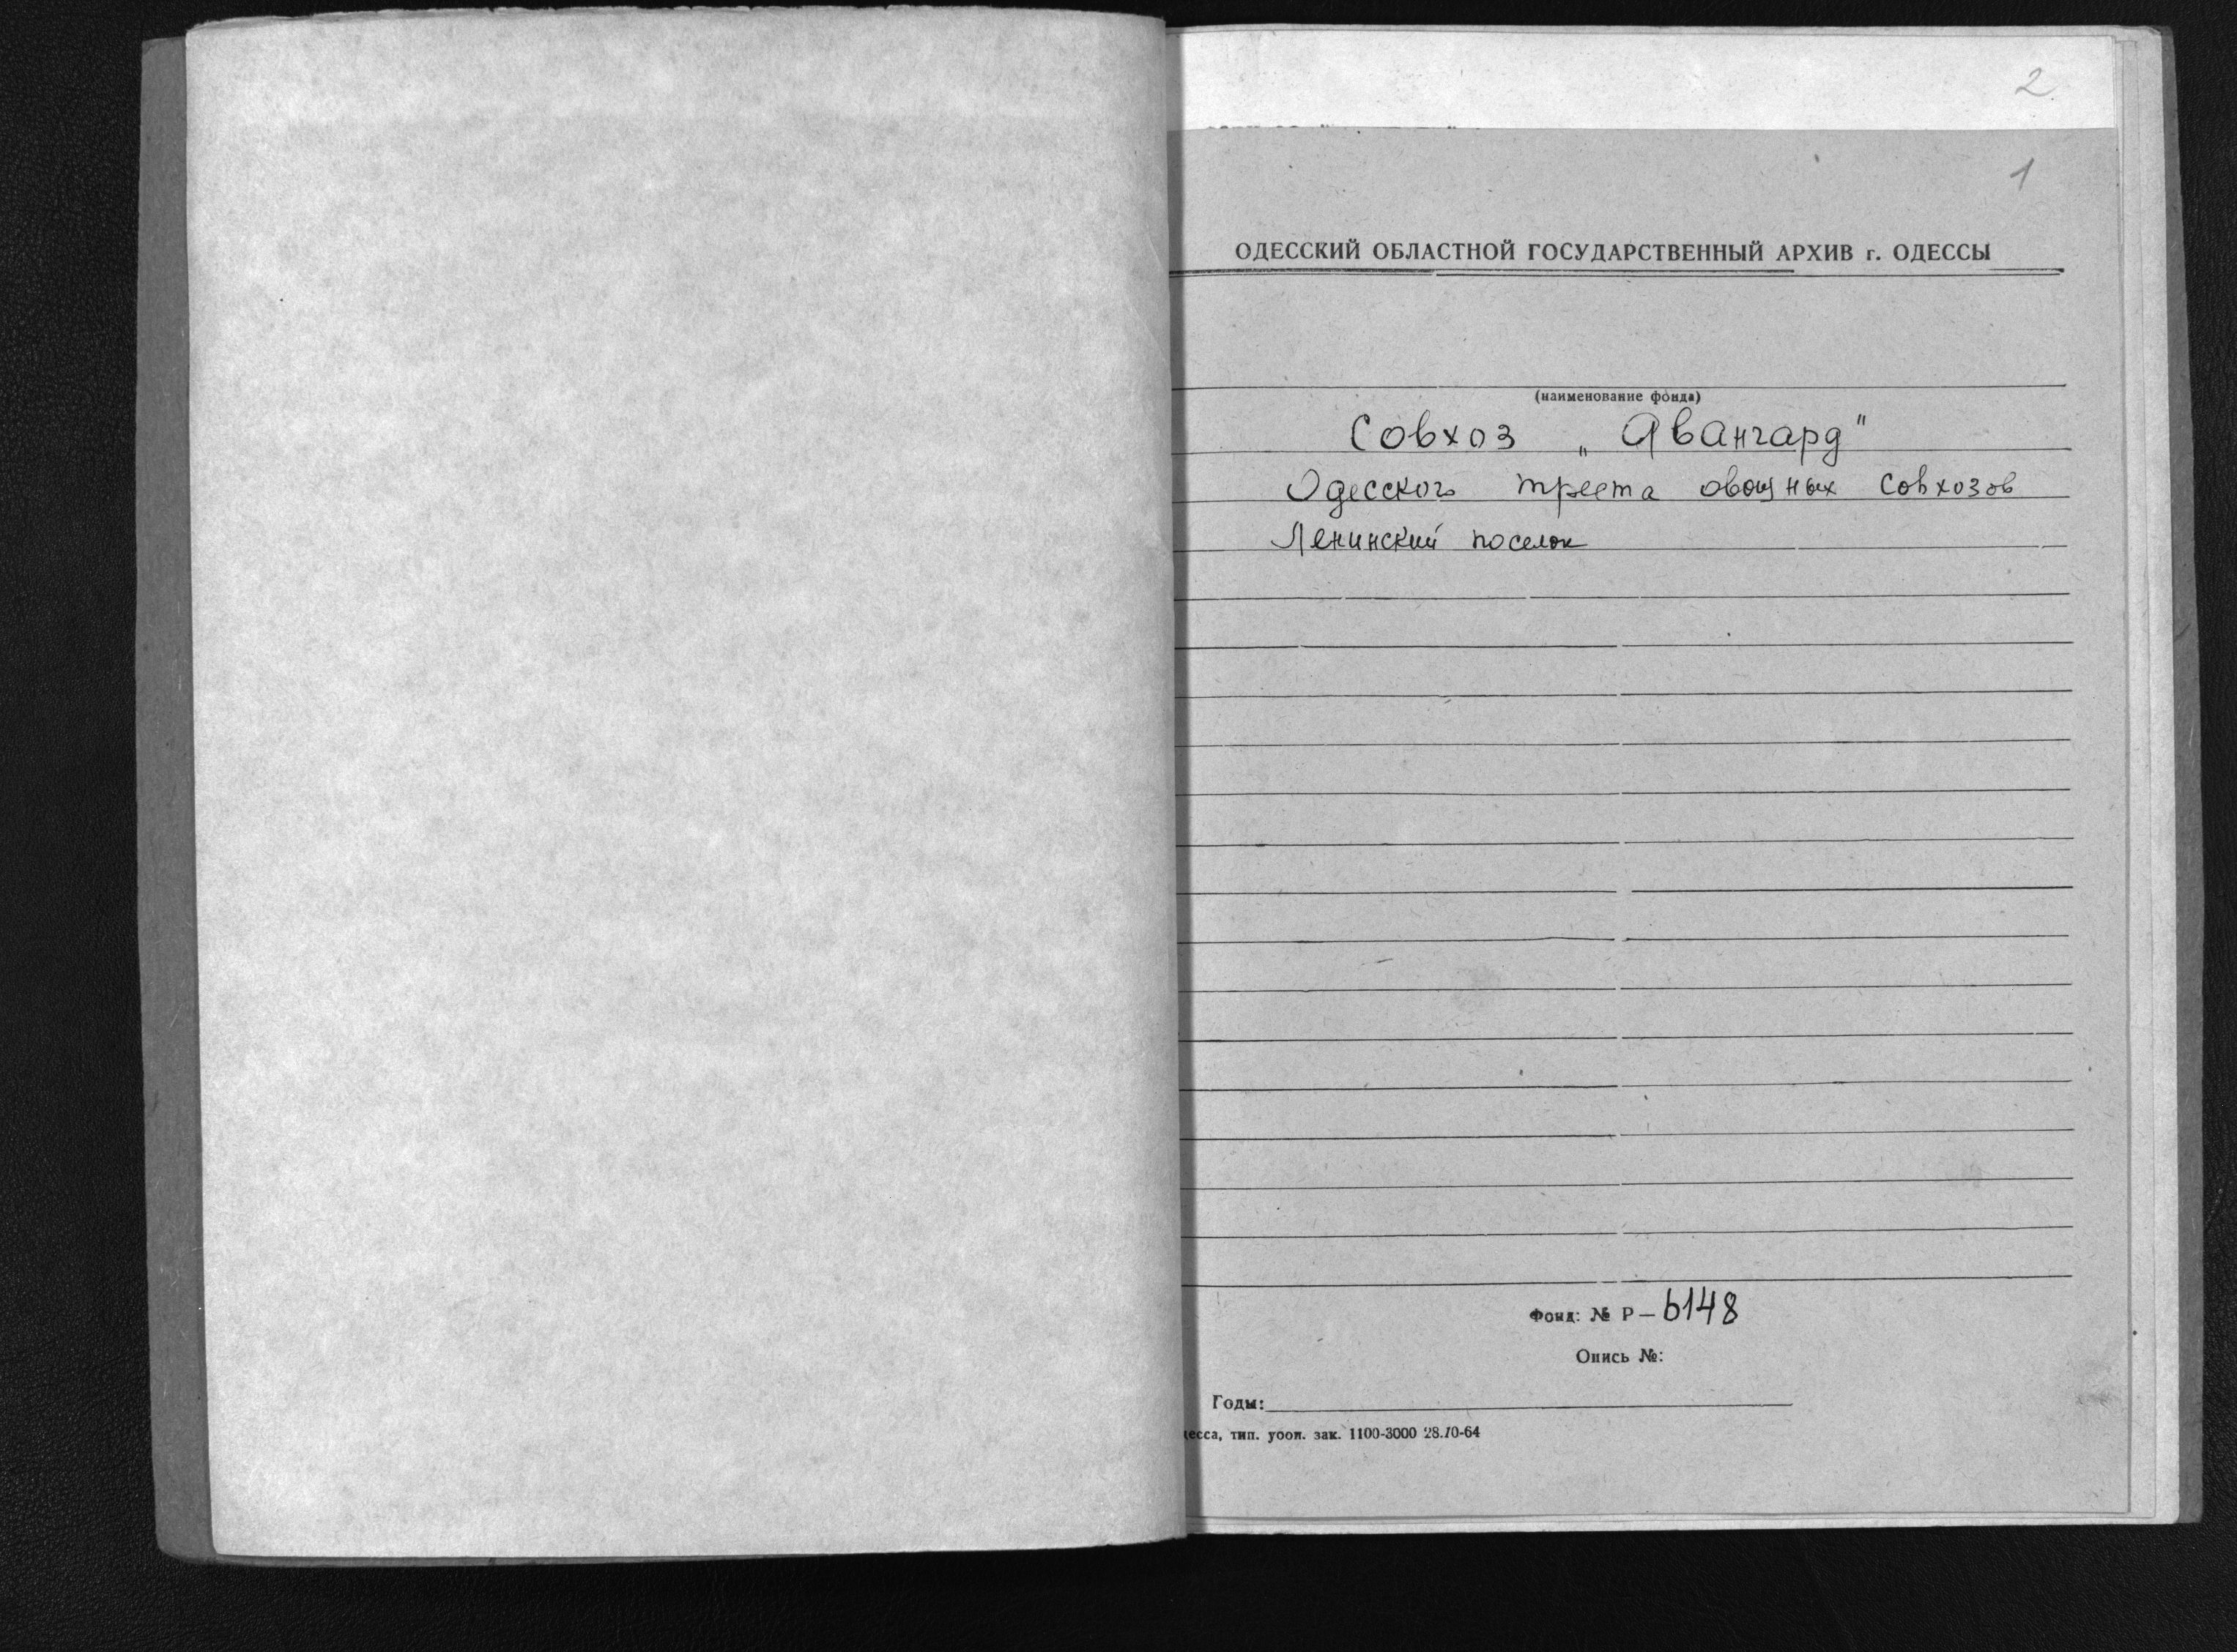 2
1
ОДЕССКИЙ ОБЛАСТНОЙ ГОСУДАРСТВЕННЫЙ АРХИВ г. ОДЕССЫ
(наименование фонда)
Совхоз „Авангард"
Одесского треста овощных совхозов
Ленинский поселок
Фонд: № Р—6148
Опись №:
Годы:
есса, тип. уоои. зак. 1100-3000 28.10-64